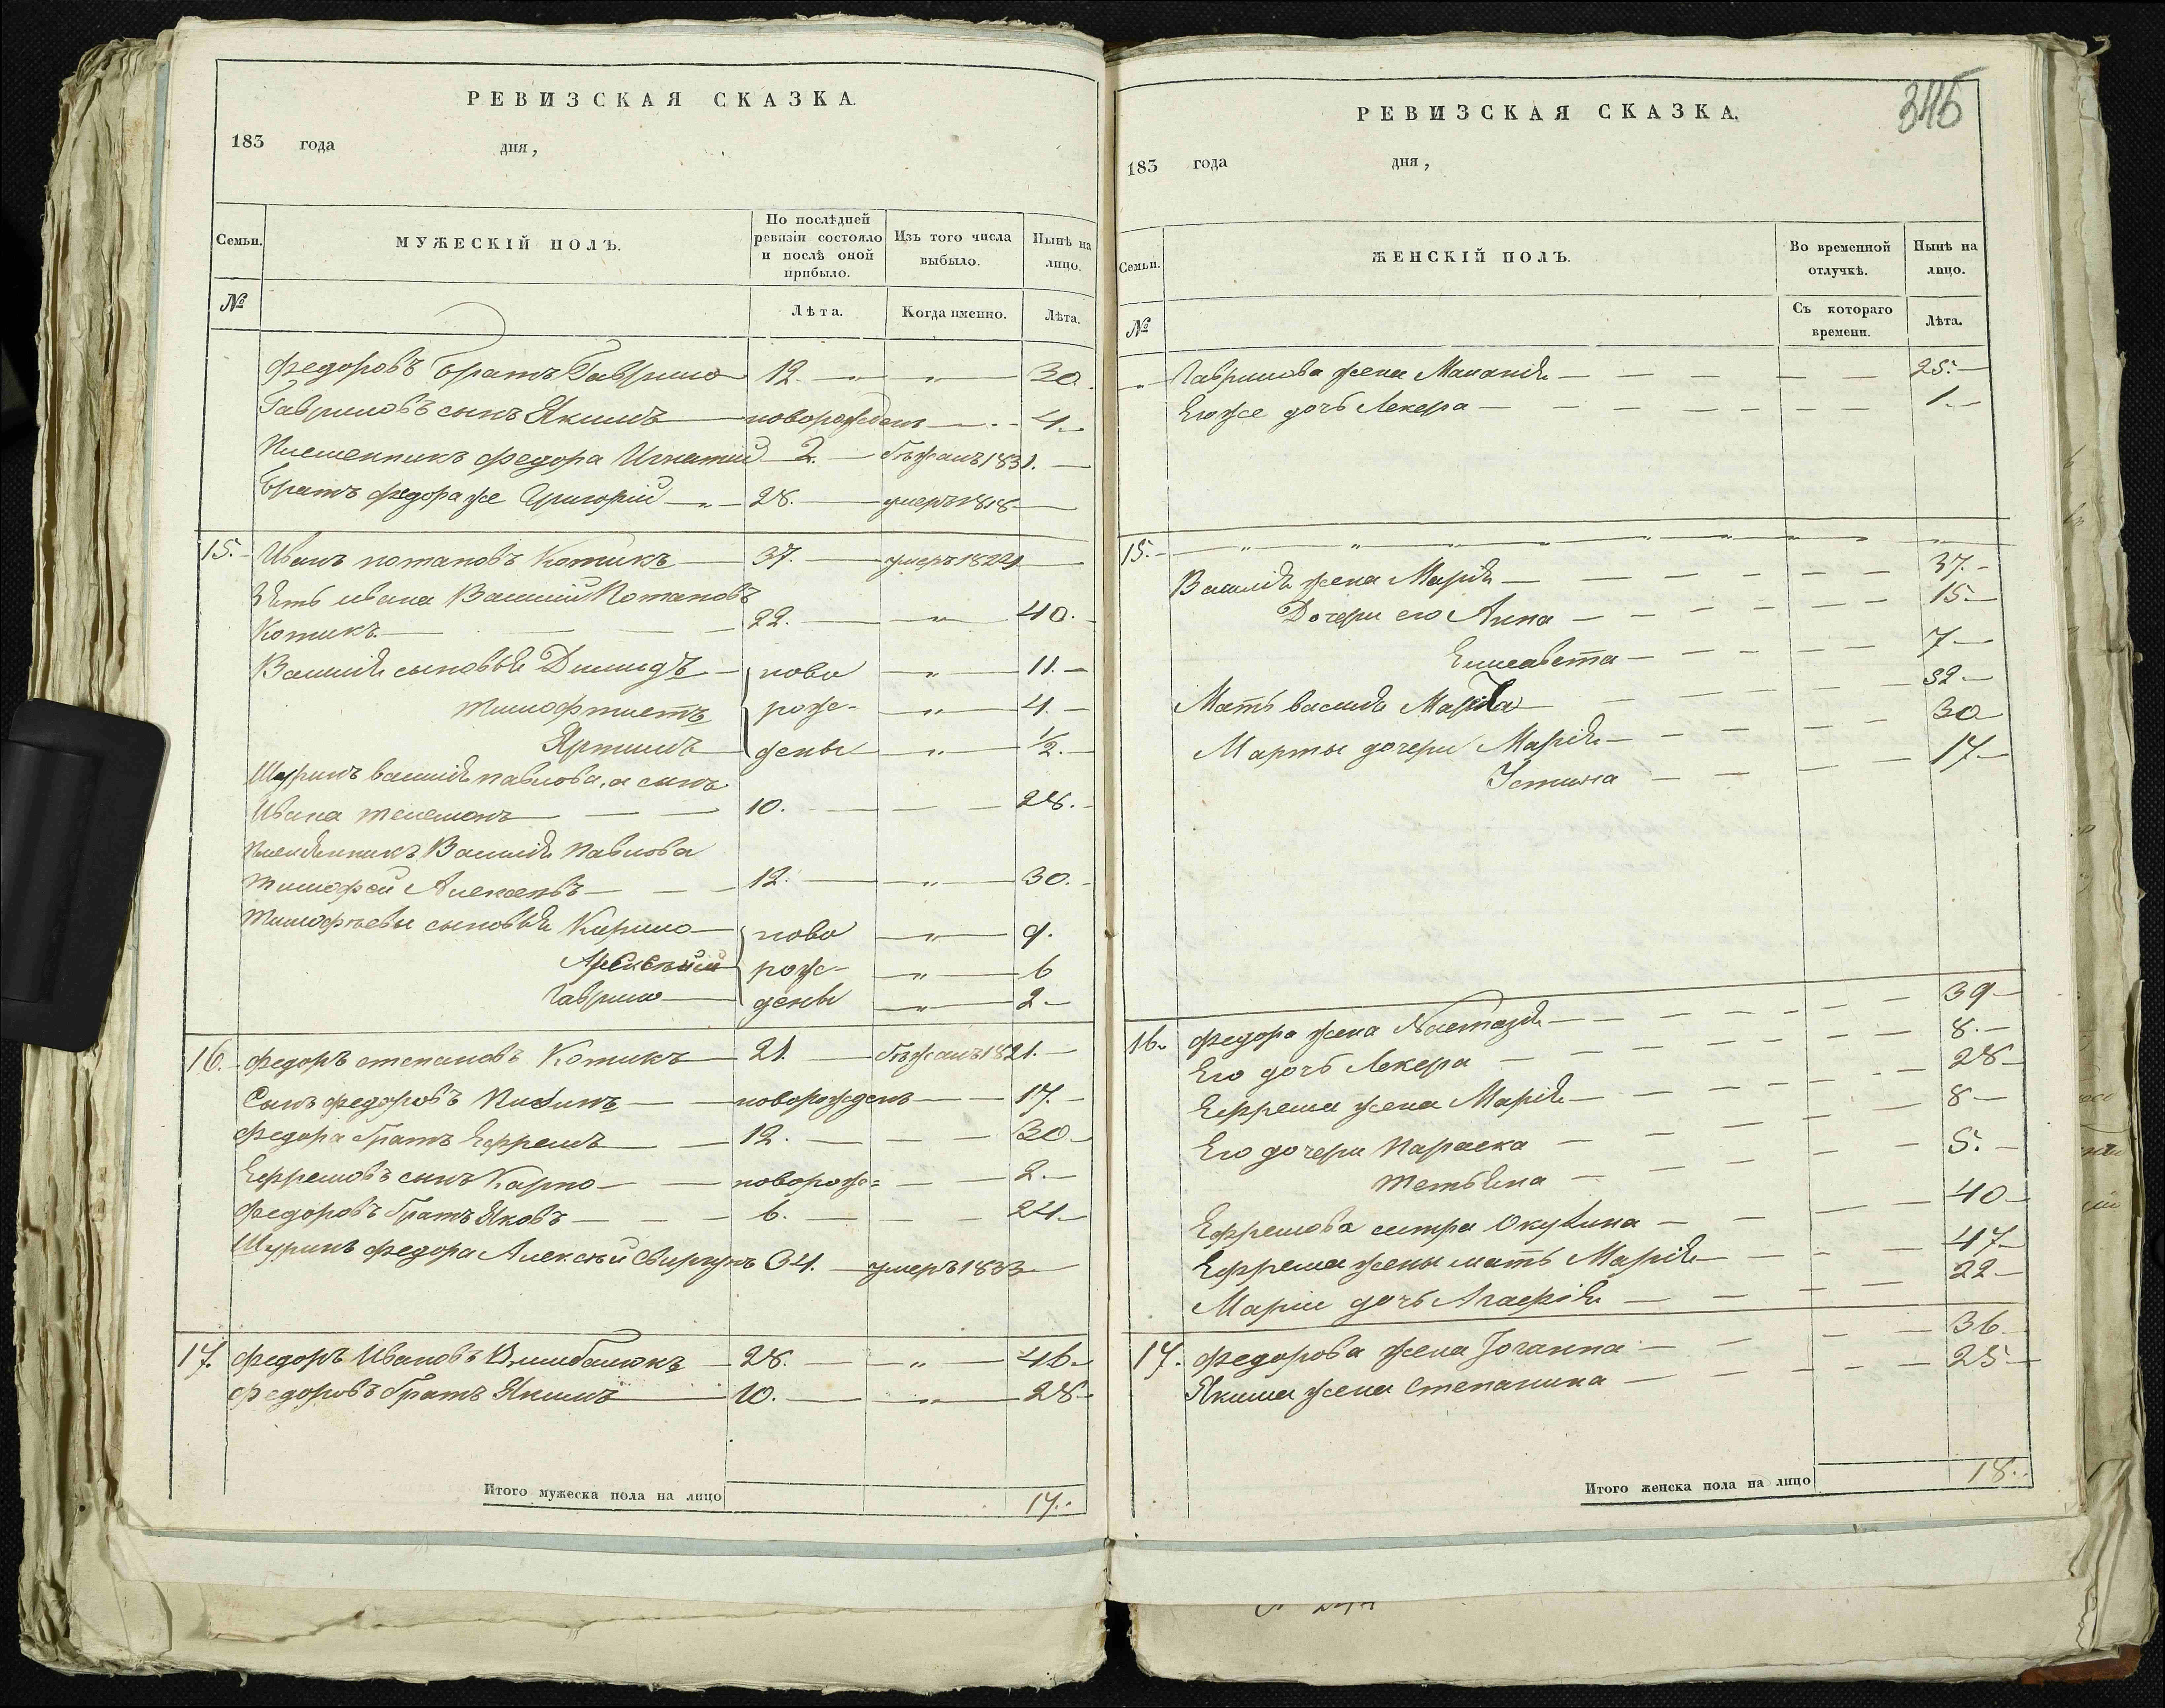 РЕВИЗСКАЯ СКАЗКА.
183 года дня,
Семьи. МУЖЕСКІЙ ПОЛЪ. По послѣдней ревизіи состояло и послѣ оной прибыло. Изъ того числа выбыло. Нынѣ на лицо.
№ Лѣта. Когда именно. Лѣта.
Федоровъ братъ Гаврило 12. — „ — „ — 30.
Гавриловъ сынъ Якимъ — новорожденъ — 4.
Племенникъ Федора Игнатий 2. — бѣжалъ 1831. —
Братъ Федора же Григорій — „ — 28. — умеръ 1818 —
15. Иванъ Потаповъ Котикъ — 37. — умеръ 1824 —
Зять Ивана Василий Потаповъ
Котикъ — 22. — „ — 40.
Василія сыновья Демидъ — ново — „ — 11. —
Тимофтистъ рож- — „ — 4. —
Яртимъ — дены — „ — ½. —
Шуринъ Василія Павлова, а сынъ
Ивана Телемонъ — 10. — 28. —
Племянникъ Василія Павлова
Тимофей Алексеевъ — 12. — „ — 30. —
Тимофѣевы сыновья Кирило — ново — „ — 9.
рож- — „ — 6
Гаврило — дены — „ — 2 —
16. Федоръ Степановъ Котикъ — 21. — бѣжалъ 1821. —
Сынъ Федоровъ — новорожденъ — 17. —
Федора братъ Ефремъ — 12. — 30 —
Ефремовъ сынъ Карпо — новорож= — 2. —
Федоровъ братъ Яковъ — 6. — 24 —
Шуринъ Федора Алексѣй Свиргунъ 64. — умеръ 1833 —
17. Федоръ Ивановъ Цимбалюкъ — 28. — „ — 46 —
Федоровъ братъ Якимъ — 10. — „ — 28 —
Итого мужеска пола на лицо 17.
345
РЕВИЗСКАЯ СКАЗКА.
183 года дня,
Семьи. ЖЕНСКІЙ ПОЛЪ. Во временной отлучкѣ. Нынѣ на лицо.
№ Съ котораго времени. Лѣта.
„ — Гаврилова жена Маланія — 25. —
Его же дочь Лекера — 1. —
15. — „ — „ — „ — „ — „ — „ — „ —
Василія жена Марія — 37. —
Дочери его Анна — 15 —
Елисавета — 7 —
Мать Василія Марта — 52 —
Марты дочери Марія — 30
Устина — 17 —
16. Федора жена Настазія — 39 —
Его дочь Лекера — 8. —
Ефрема жена Марія — 28 —
Его дочери Параска — 8 —
Тетьяна — 5. —
Ефремова систра — 40 —
Ефрема жены мать Марія — 47 —
Маріи дочь Агафія — 22 —
17. Федорова жена Іоганна — 36 —
Якима жена Степанина — 25 —
Итого женска пола на лицо 18.